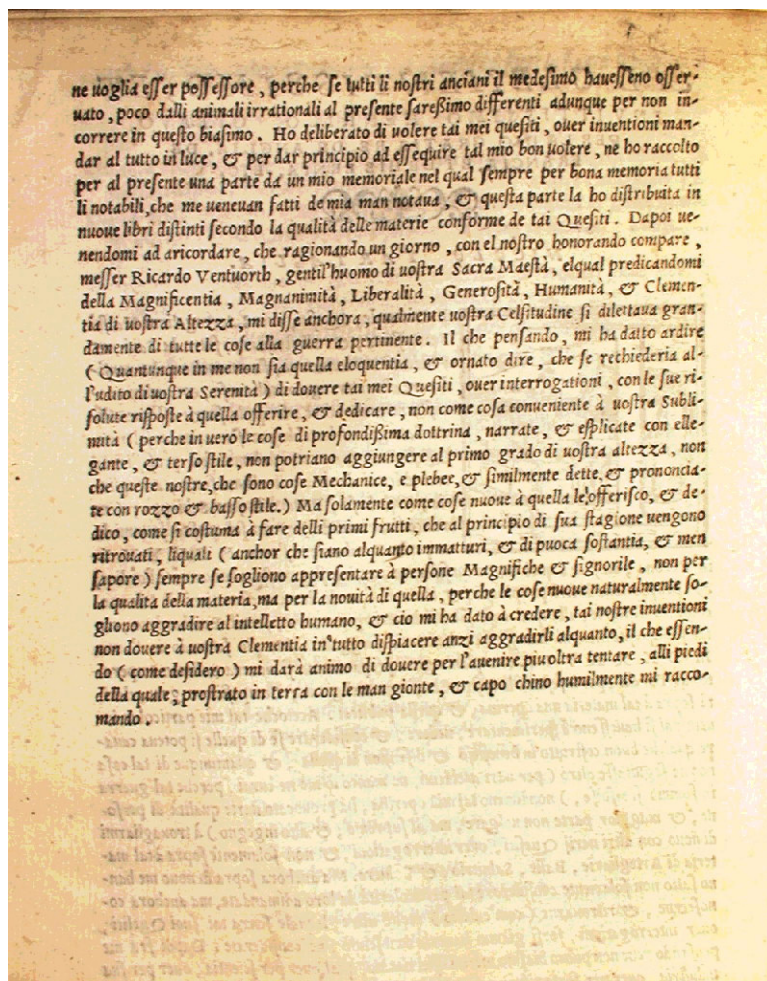 ne uoglia esser possessore, perche se tutti li nostri anciani il medesimo hauesseno osser-
uato, poco dalli animali irrationali al presente sareßimo differenti adunque per non in-
correre in questo biasimo. Ho deliberato di uolere tai mei quesiti, ouer inuentioni man-
dar al tutto in luce, & per dar principio ad essequire tal mio bon uolere, ne ho raccolto
per al presente una parte da un mio memoriale nel qual sempre per bona memoria tutti
li notabili, che me ueneuan fatti de mia man notaua, & questa parte la ho distribuita in
nuoue libri distinti secondo la qualità delle materie conforme de tai Quesiti. Dapoi ue-
nendomi ad aricordare, che ragionando un giorno, con el nostro honorando compare,
messer Ricardo Ventuorth, gentil'huomo di uostra Sacra Maestà, elqual predicandomi
della Magnificentia, Magnanimità, Liberalità, Generosità, Humanità, & Clemen-
tia di uostra Altezza, mi disse anchora, qualmente uostra Celsitudine si dilettaua gran-
damente di tutte le cose alla guerra pertinente. Il che pensando, mi ha datto ardire
(Quantunque in me non sia quella eloquentia, & ornato dire, che se rechiederia al-
l'udito di uostra Serenità) di douere tai mei Quesiti, ouer interrogationi, con le sue ri-
solute risposte à quella offerire, & dedicare, non come cosa conueniente à uostra Subli-
mità (perche in uero le cose di profondißima dottrina, narrate, & esplicate con elle-
gante, & terso stile, non potriano aggiungere al primo grado di uostra altezza, non
che queste nostre, che sono cose Mechanice, e plebee, & similmente dette, & prononcia-
te con rozzo & basso stile.) Ma solamente come cose nuoue à quella le offerisco, & de-
dico, come si costuma à fare delli primi frutti, che al principio di sua stagione uengono
ritrouati, liquali (anchor che siano alquanto immatturi, & di puoca sostantia, & men
sapore) sempre se sogliono appresentare à persone Magnifiche & signorile, non per
la qualita della materia, ma per la nouità di quella, perche le cose nuoue naturalmente so-
gliono aggradire al intelletto humano, & cio mi ha dato à credere, tai nostre inuentioni
non douere à uostra Clementia in tutto dispiacere anzi aggradirli alquanto, il che essen-
do (come desidero) mi darà animo di douere per l'auenire piu oltra tentare, alli piedi
della quale, prostrato in terra con le man gionte, & capo chino humilmente mi racco-
mando.